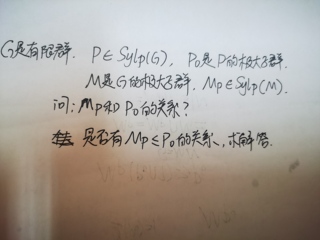 G是有限群. P∈Sylp(G), P₀是P的极大子群.
M是G的极大子群, Mp∈Sylp(M).
问: Mp和P₀的关系?
是否有Mp≤P₀的关系, 求解答.